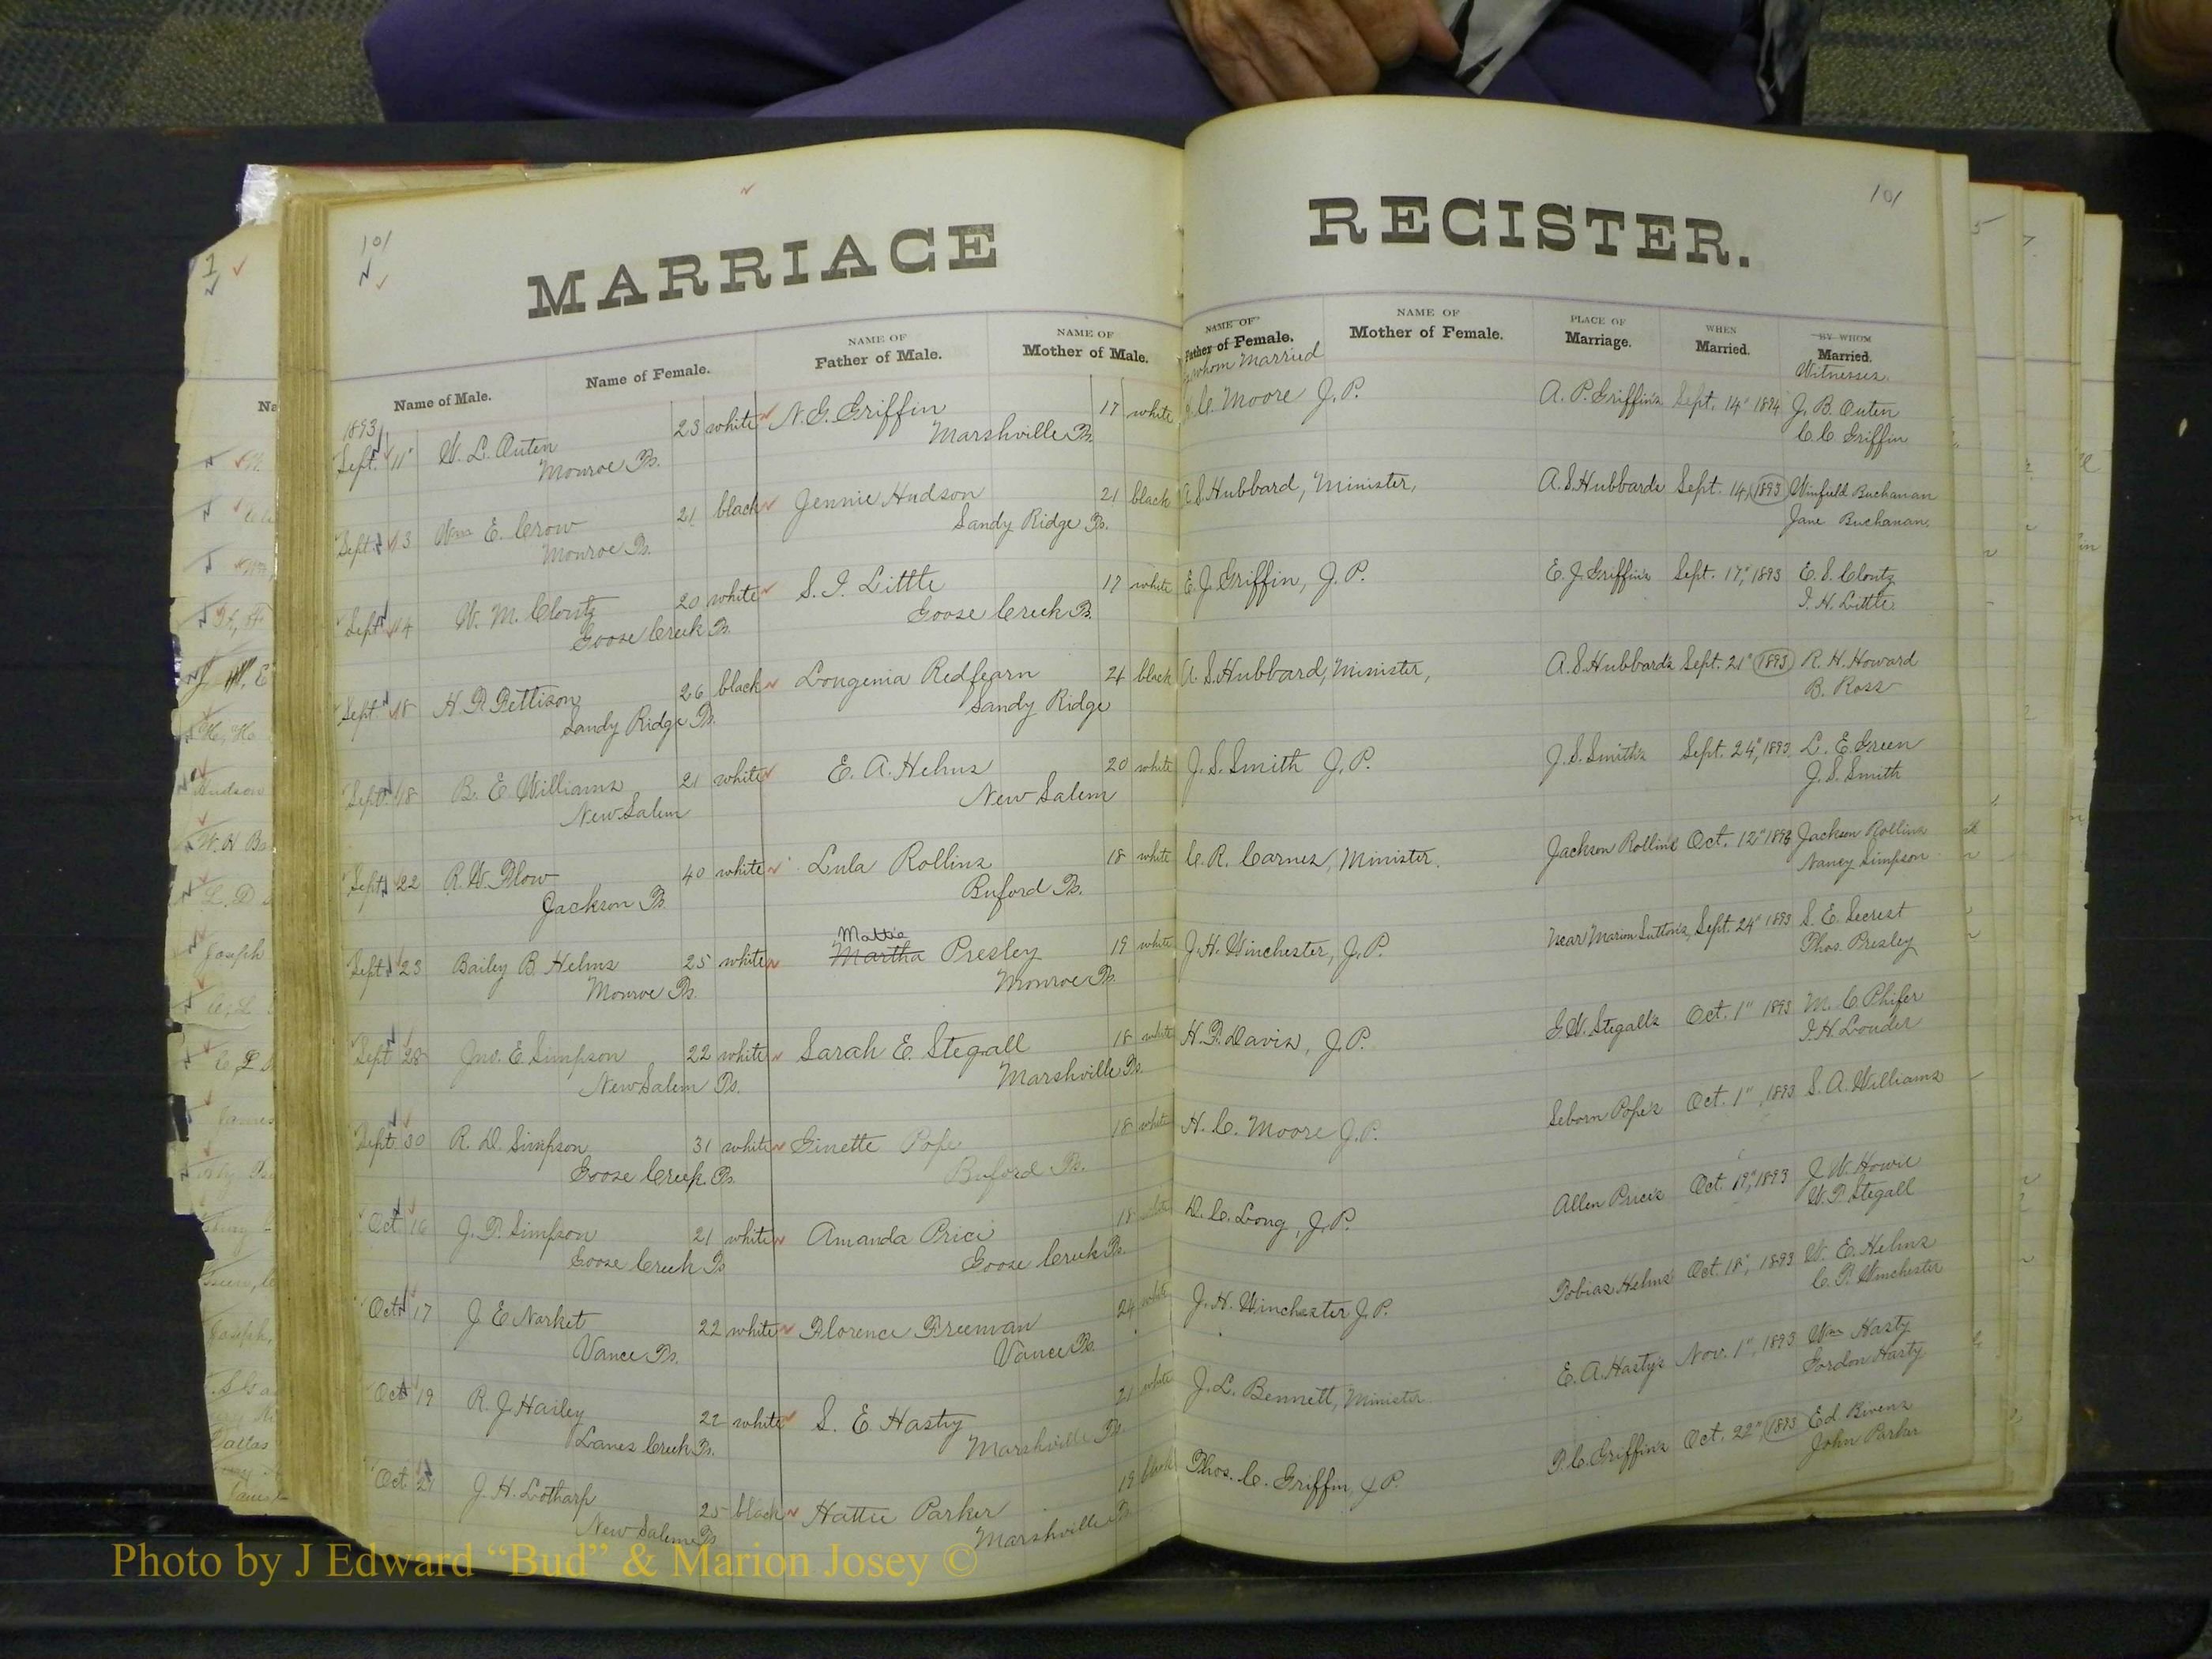 101
MARRIAGE
REGISTER.
101
Name of Male.
Name of Female.
NAME OF
Father of Male.
NAME OF
Mother of Male.
NAME OF
Father of Female.
whom Married
NAME OF
Mother of Female.
PLACE OF
Marriage.
WHEN
Married.
BY WHOM
Married.
Witnesses.
1893
Sept. 11" W. L. Outen 23 white N. G. Griffin 17 white C. Moore J. P. A. P. Griffin's Sept. 14" 1894 J. B. Outen
Monroe Ts. Marshville Ts. C. C. Griffin
Sept. 13 Wm E. Crow 21 black Jennie Hudson 21 black A. S. Hubbard, Minister, A. S. Hubbards Sept. 14, 1893 Winfield Buchanan
Monroe Ts. Sandy Ridge Ts. Jane Buchanan.
Sept. 14 W. M. Clontz 20 white S. I. Little 17 white E. J. Griffin, J. P. E. J. Griffin's Sept. 17," 1893 E. S. Clontz
Goose Creek Ts. Goose Creek Ts. I. H. Little
Sept. 18 H. P. Pettison 26 black Longenia Redfearn 21 black A. S. Hubbard, Minister, A. S. Hubbard's Sept. 21" 1893 R. H. Howard
Sandy Ridge Ts. Sandy Ridge B. Ross
Sept. 18 B. E. Williams 21 white E. A. Helms 20 white J. S. Smith J. P. J. S. Smith's Sept. 24," 1893 L. E. Green
New Salem New Salem J. S. Smith
Sept. 22 R. W. Plow 40 white Lula Rollins 18 white C. R. Carnes, Minister. Jackson Rollins Oct. 12" 1893 Jackson Rollins
Jackson Ts. Buford Ts. Nancy Simpson
Mattie
Sept. 23 Bailey B. Helms 25 white Martha Presley 19 white J. H. Winchester, J. P. Near Marion Sutton's, Sept. 24" 1893 S. E. Secrest
Monroe Ts. Monroe Ts. Thos. Presley
Sept. 28 Jno. E. Simpson 22 white Sarah E. Stegall 18 white H. P. Davis, J. P. G. W. Stegall's Oct. 1" 1893 M. C. Phifer
New Salem Ts. Marshville Ts. I. H. Louder
Sept. 30 R. D. Simpson 31 white Ginette Pope 18 white H. C. Moore J. P. Seborn Pope's Oct. 1", 1893 S. A. Williams
Goose Creek Ts. Buford Ts.
Oct. 16 J. P. Simpson 21 white Amanda Price 18 white D. C. Long, J. P. Allen Price's Oct. 19," 1893 J. W. Howie
Goose Creek Ts Goose Creek Ts. W. P. Stegall
Oct. 17 J. E. Narket 22 white Florence Freeman 24 white J. H. Winchester J. P. Tobias Helms' Oct. 18", 1893 W. E. Helms
Vance Ts. Vance Ts. C. P. Winchester
Oct 19 R. J. Hailey 22 white S. E. Hasty 21 white J. L. Bennett, Minister E. A. Hasty's Nov. 1", 1893 Wm Hasty
Lanes Creek Ts. Marshville Ts. Gordon Hasty
Oct 21 J. H. Lotharp 25 black Hattie Parker 19 black Thos. C. Griffin, J. P. T. C. Griffin's Oct. 22", 1893 Ed. Bivens
New Salem Ts Marshville Ts John Parker
Photo by J Edward “Bud” & Marion Josey ©